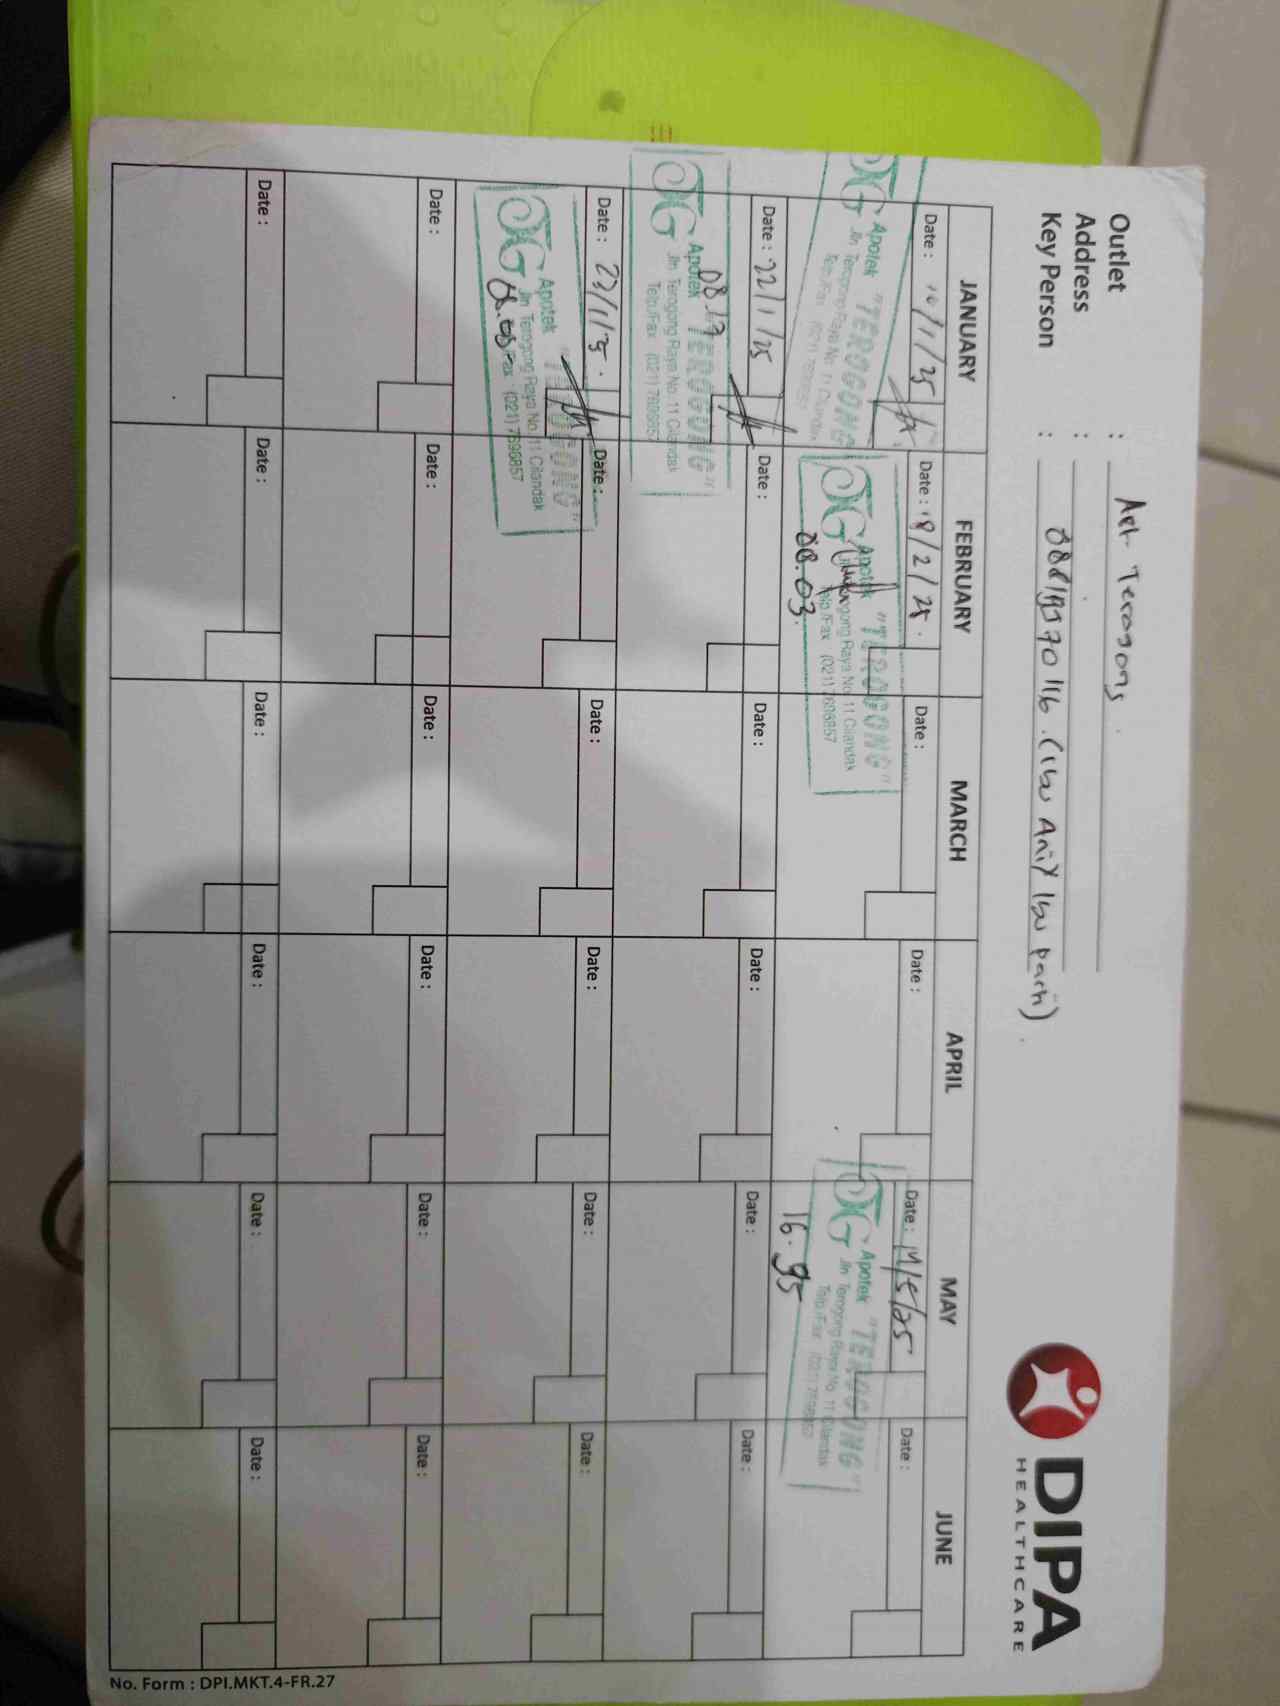 DIPA
HEALTHCARE
Outlet : Apt Terogong.
Address :
Key Person : (Ibu Ani / Ibu
JANUARY FEBRUARY MARCH APRIL MAY JUNE
Date : /1/25 Date : 18/2/25. Date : Date : Date : /5/25 Date :
Apotek "TEROGONG"
Jln Terogong Raya No. 11 Cilandak
Telp/Fax (021) 7696857
Apotek "TEROGONG"
Jln Terogong Raya No. 11 Cilandak
Telp/Fax (021) 7696857
08.03.
Apotek "TEROGONG"
Jln Terogong Raya No. 11 Cilandak
Telp/Fax (021) 7696857
16.95
Date : 22/1/25 Date : Date : Date : Date : Date :
Apotek "TEROGONG"
Jln Terogong Raya No. 11 Cilandak
Telp/Fax (021) 7696857
Date : 23/1/25. Date : Date : Date : Date : Date :
Apotek "TEROGONG"
Jln Terogong Raya No. 11 Cilandak
Fax (021) 7696857
Date : Date : Date : Date : Date : Date :
Date : Date : Date : Date : Date : Date :
No. Form : DPI.MKT.4-FR.27